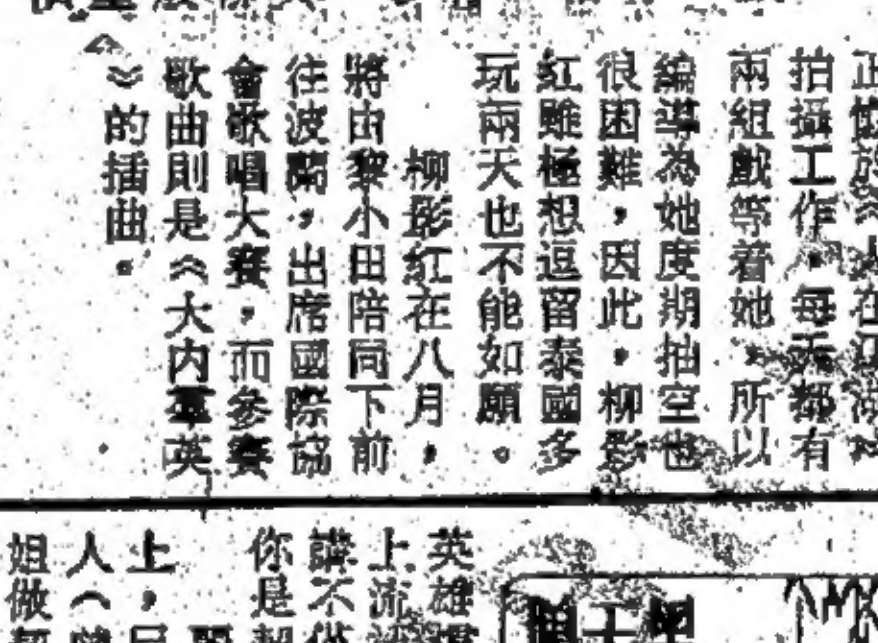 正懷於《人在江湖》
拍攝工作，每天都有
兩組戲等着她，所以
編導為她度期抽空也
很困難，因此，柳影
紅雖極想逗留泰國多
玩兩天也不能如願。
柳影紅在八月，
將由黎小田陪同下前
往波蘭，出席國際協
會歌唱大賽，而參賽
歌曲則是《大內羣英
》的插曲。
英雄
上流
講不
你是
上，
人（
姐做